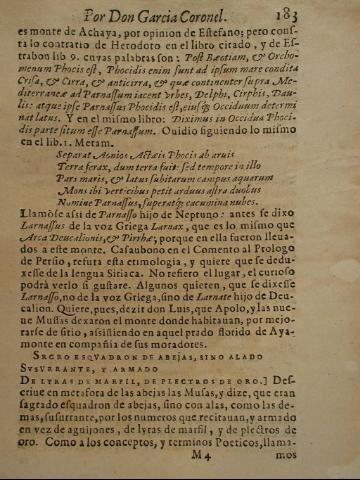 Por Don Garcia Coronel. 183
es monte de Achaya, por opinion de Estefano; pero consta
lo contratio de Herodoto en el libro citado, y de Es-
trabon lib 9. cuyas palabras son: Post Bæotiam, & Orcho-
menum Phocis est, Phocidis enim sunt ad ipsum mare condita
Crisa, & Cirra, & anticirra, & quæ continenter supra Medi-
terraneæ ad Parnassum iacent vrbes, Delphi, Cirphis, Dau-
lis: atque ipse Parnassus Phocidis est, eiusq; Occiduum determi
nat latus. Y en el mismo libro: Diximus in Occidua Phoci-
dis parte situm esse Parnassum. Ouidio siguiendo lo mismo
en el lib. 1. Metam.
Separat Aonios Actæis Phocis ab aruis
Terra ferax, dum terra fuit: sed tempore in illo
Pars maris, & latus subitarum campus aquarum
Mons ibi verticibus petit arduus astra duobus
Nomine Parnassus, superatq; cacumina nubes.
Llamòse assi de Parnasso hijo de Neptuno: antes se dixo
Larnassus de la voz Griega Larnax, que es lo mismo que
Arca Deucalionis, & Pirrhæ, porque en ella fueron lleua-
dos a este monte. Casaubono en el Comento al Prologo
de Persio, refuta esta etimologia, y quiere que se dedu-
xesse de la lengua Siriaca. No refiero el lugar, el curioso
podrà verlo si gustare. Algunos quieren, que se dixesse
Larnasso, no de la voz Griega, sino de Larnate hijo de Deu-
calion. Quiere, pues, dezir don Luis, que Apolo, y las nue-
ue Musas dexaron el monte donde habitauan, por mejo-
rarse de sitio, assistiendo en aquel prado florido de Aya-
monte en compañia de sus moradores.
SAGRO ESQVADRON DE ABEJAS, SINO ALADO
SVSVRRANTE, Y ARMADO
DE LYRAS DE MARFIL, DE PLECTROS DE ORO.] Des-
criue en metafora de las abejas las Musas, y dize, que eran
sagrado esquadron de abejas, sino con alas, como las de-
mas, susurrante, por los numeros que recitauan, y armado
en vez de aguijones, de lyras de marfil, y de plectros de
oro. Como a los conceptos, y terminos Poeticos, llama-
M 4 mos